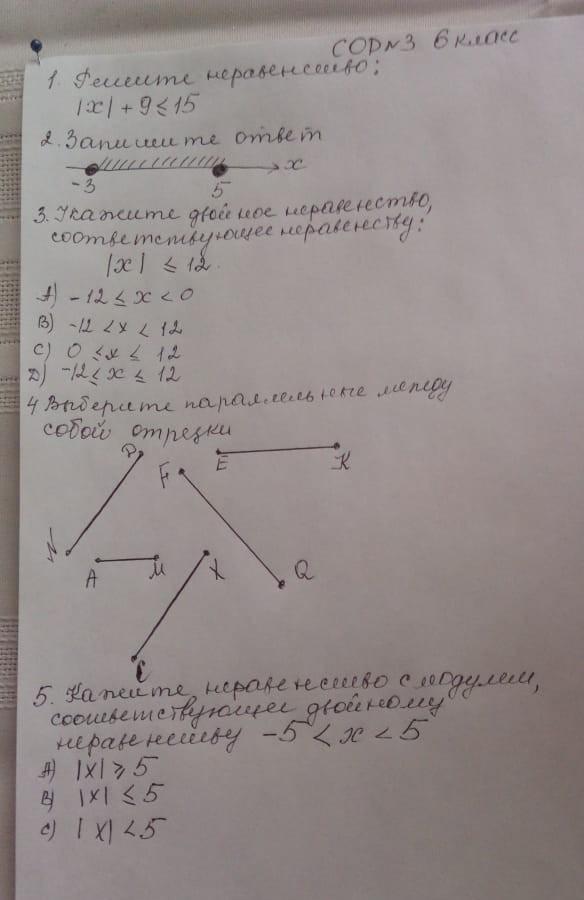 СОР№3 6 класс
1. Решите неравенство:
|x| + 9 ≤ 15
2. Запишите ответ
x
-3 5
3. Укажите двойное неравенство,
соответствующее неравенству:
|x| ≤ 12.
A) -12 ≤ x < 0
B) -12 < x < 12
C) 0 ≤ x ≤ 12
D) -12 ≤ x ≤ 12
4 Выберите параллельные между
собой отрезки
D F E K
N A M X Q
C
5. Кажите, неравенство с модулем,
соответствующее двойному
неравенству -5 < x < 5
A) |x| ≥ 5
B) |x| ≤ 5
C) |x| < 5